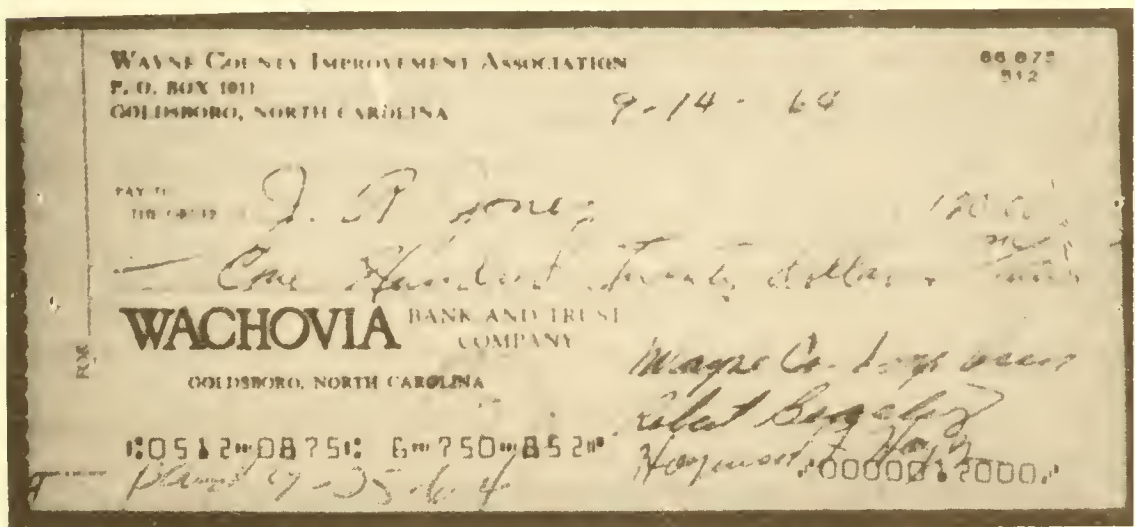 WAYNE COUNTY IMPROVEMENT ASSOCIATION
P. O. BOX 1011
GOLDSBORO, NORTH CAROLINA
66 875
512
9-14-64
PAY TO
THE ORDER
J. R. Jones
120.00
One Hundred Twenty dollars
WACHOVIA BANK AND TRUST COMPANY
GOLDSBORO, NORTH CAROLINA
FOR
Wayne Co.
⑆0512⑉0875⑆ 6⑉750⑉852⑈
⑇0000012000⑇
9-25-64